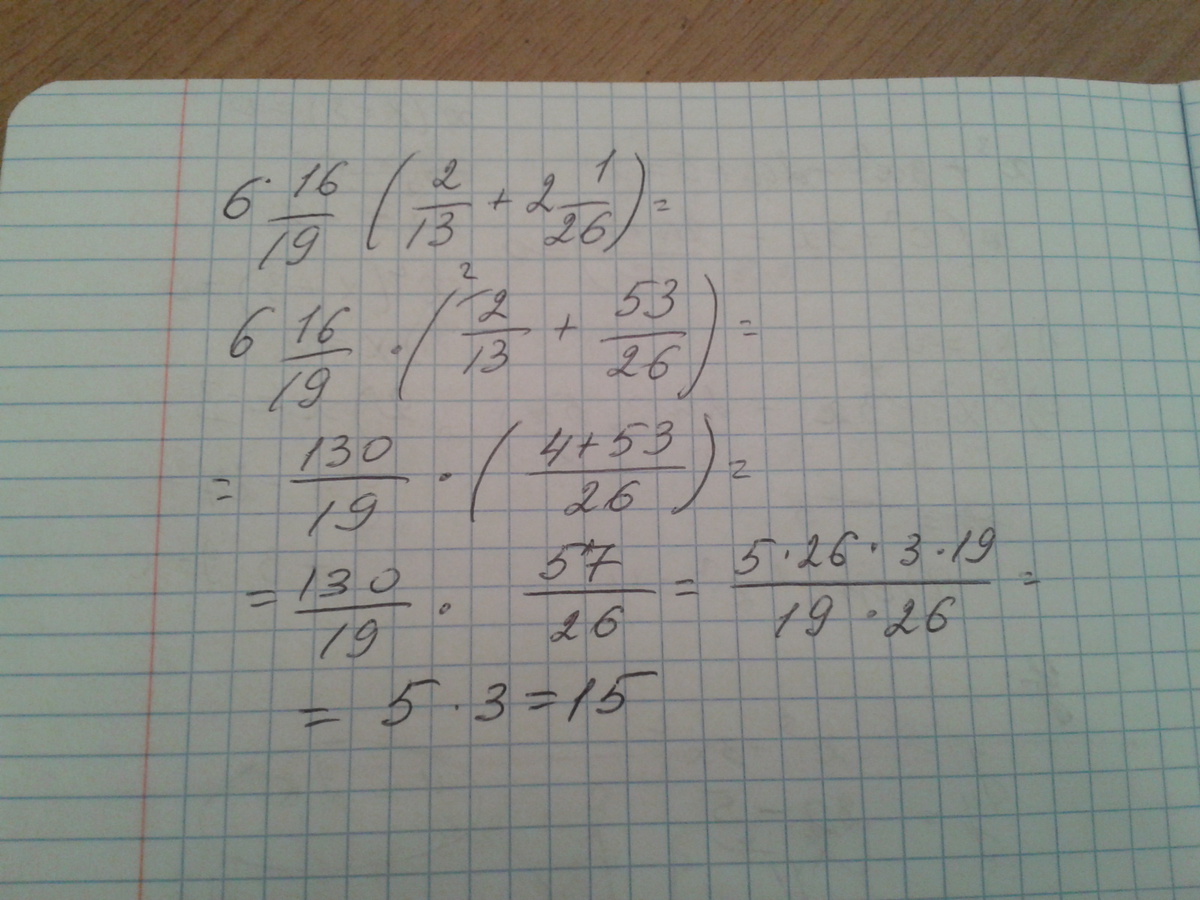 6 16/19 (2/13 + 2 1/26) =
6 16/19 · (2/13 ² + 53/26) =
= 130/19 · (4+53/26) =
= 130/19 · 57/26 = 5·26·3·19/19·26 =
= 5 · 3 = 15